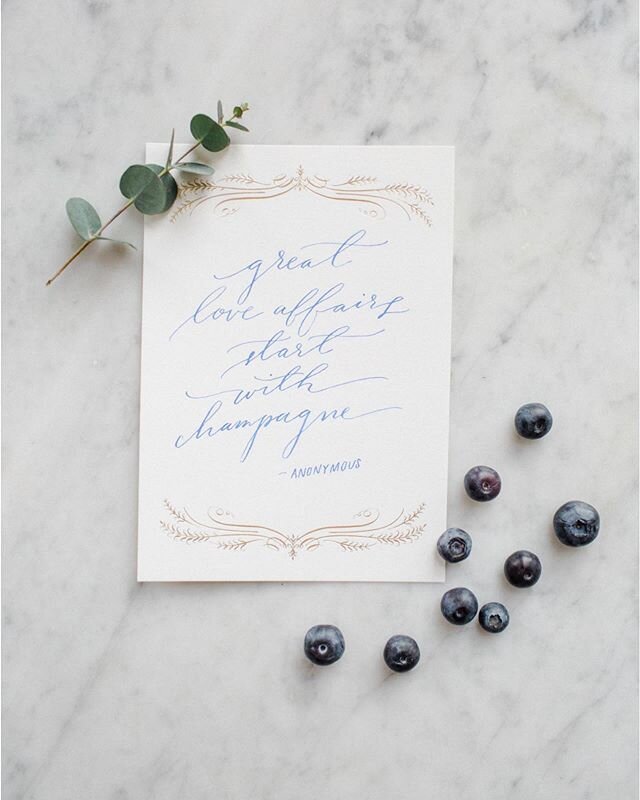 great
love affairs
start
with
champagne
- ANONYMOUS